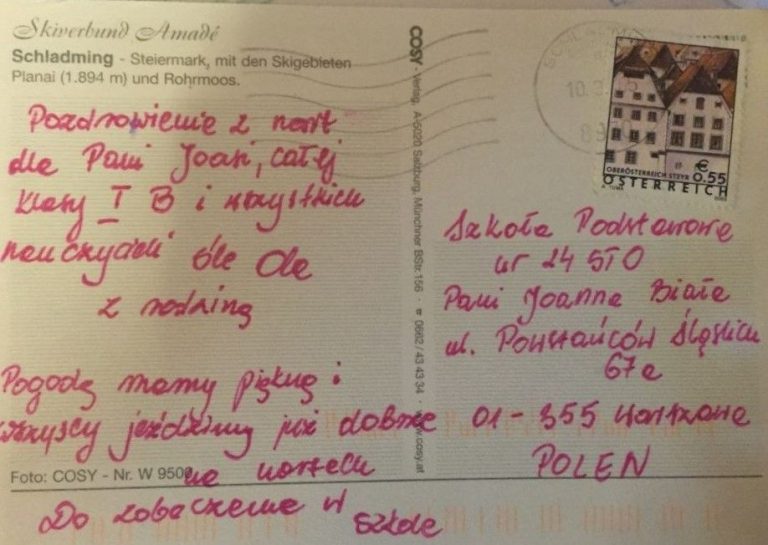 Skiverbund Amadé
Schladming - Steiermark, mit den Skigebieten
Planai (1.894 m) und Rohrmoos.
Pozdrowienie z nart
dla Pani Joasi, całej
klasy I B i wszystkich
nauczycieli śle Ola
z rodziną
Pogodę mamy piękną i
wszyscy jeździmy już dobrze
na nartach
Do zobaczenia w
szkole
Foto: COSY - Nr. W 9500
COSY - Verlag, A-5020 Salzburg, Münchner BStr.156 · ☎ 0662 / 43 43 34 · www.cosy.at
10.
OBERÖSTERREICH STEYR
€ 0.55
ÖSTERREICH
Szkoła Podstawowa
nr 24 STO
Pani Joanna Biała
ul. Powstańców Śląskich
67a
01-355 Warszawa
POLEN